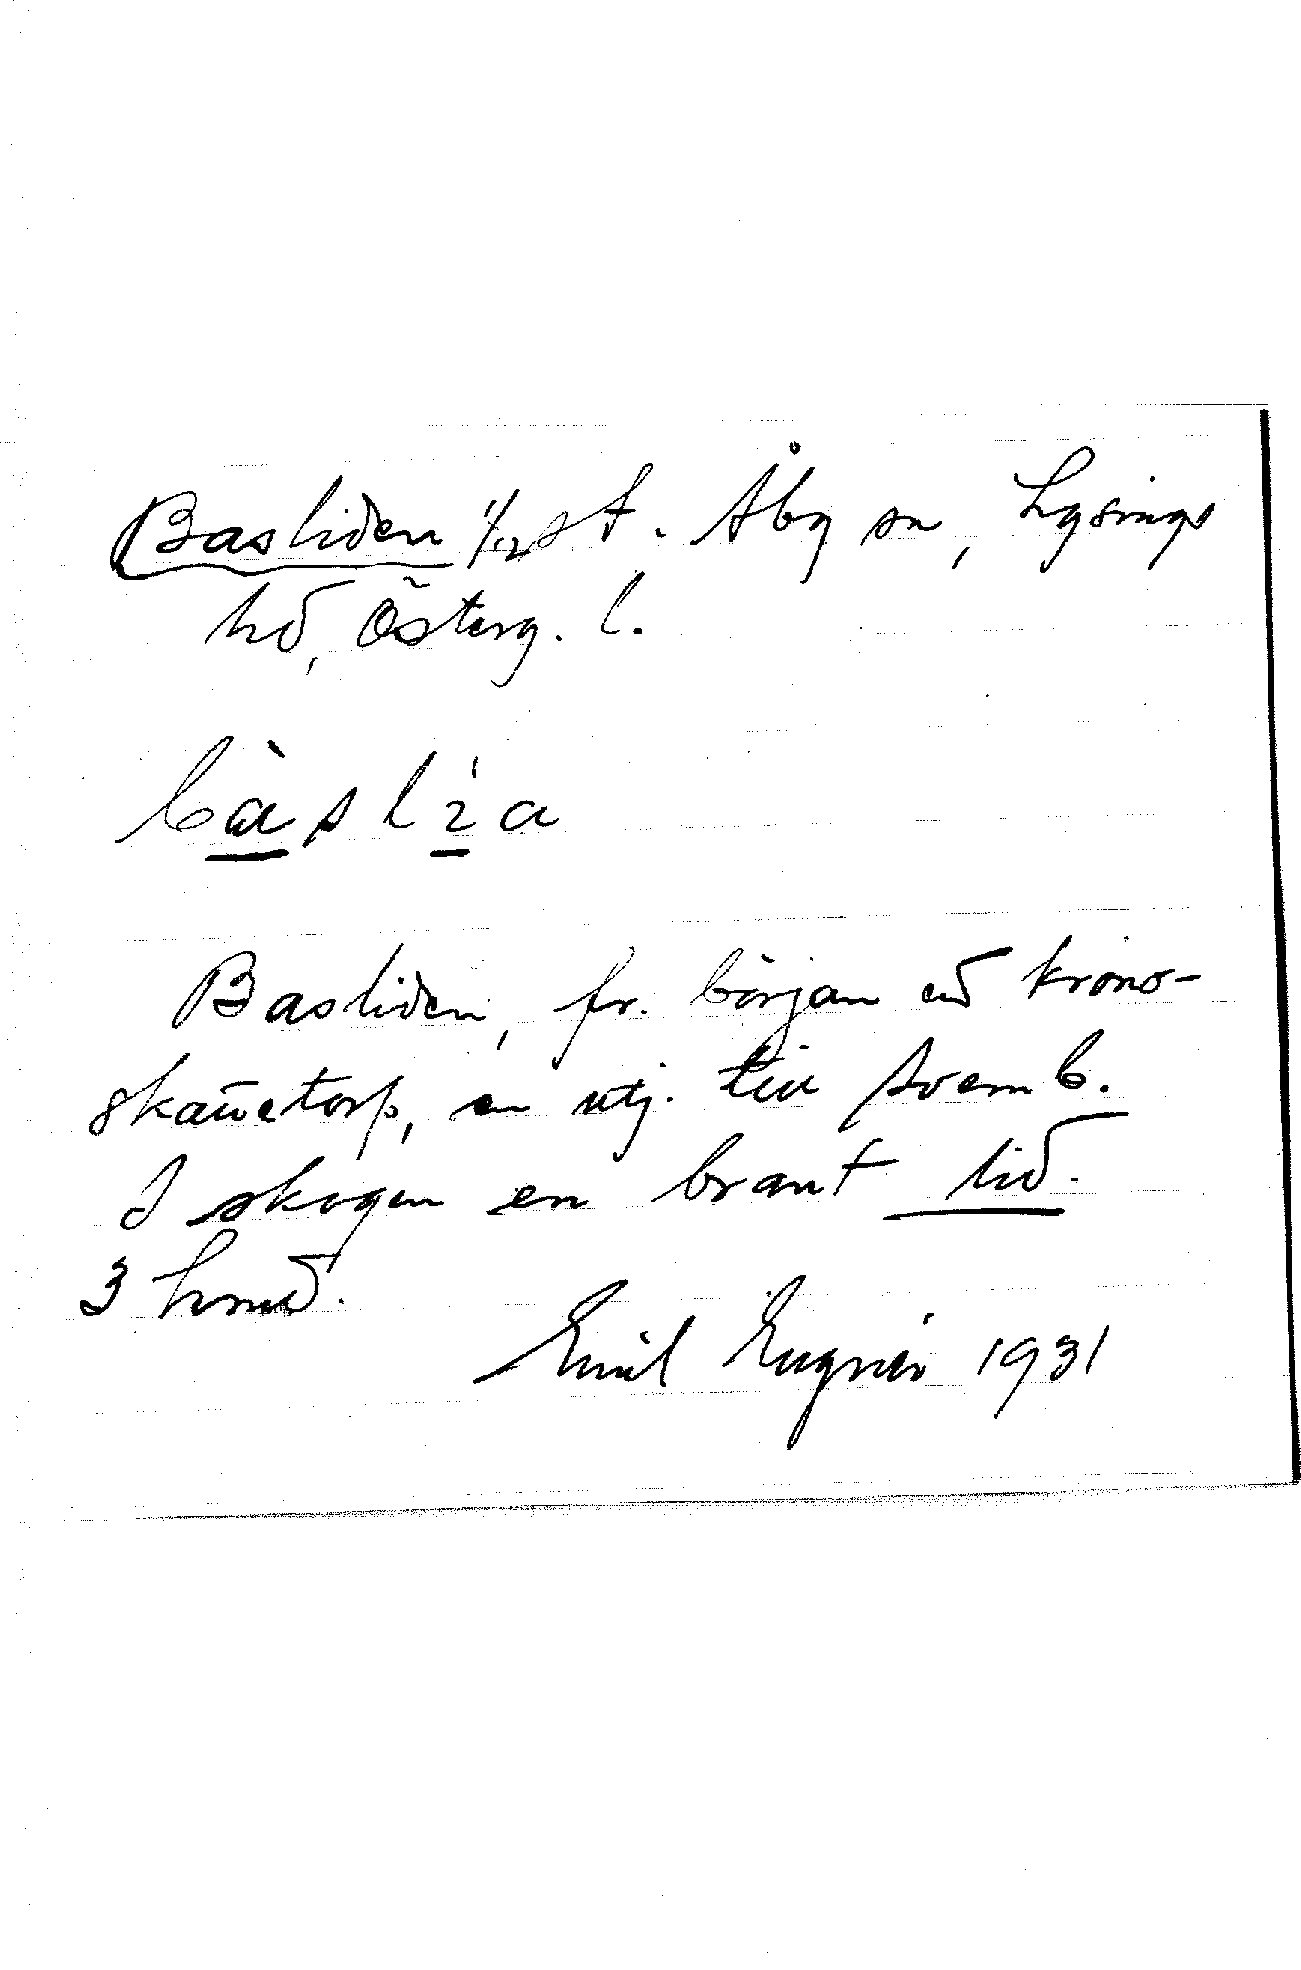 Basliden 1/12 st. Åby sn, Lysings
hd, Österg. l.
bàslı́a
Basliden, fr. början ett krono-
skattetorp, en utj. till Svemb.
I skogen en brant lid.
3 hmd.
Emil 1931